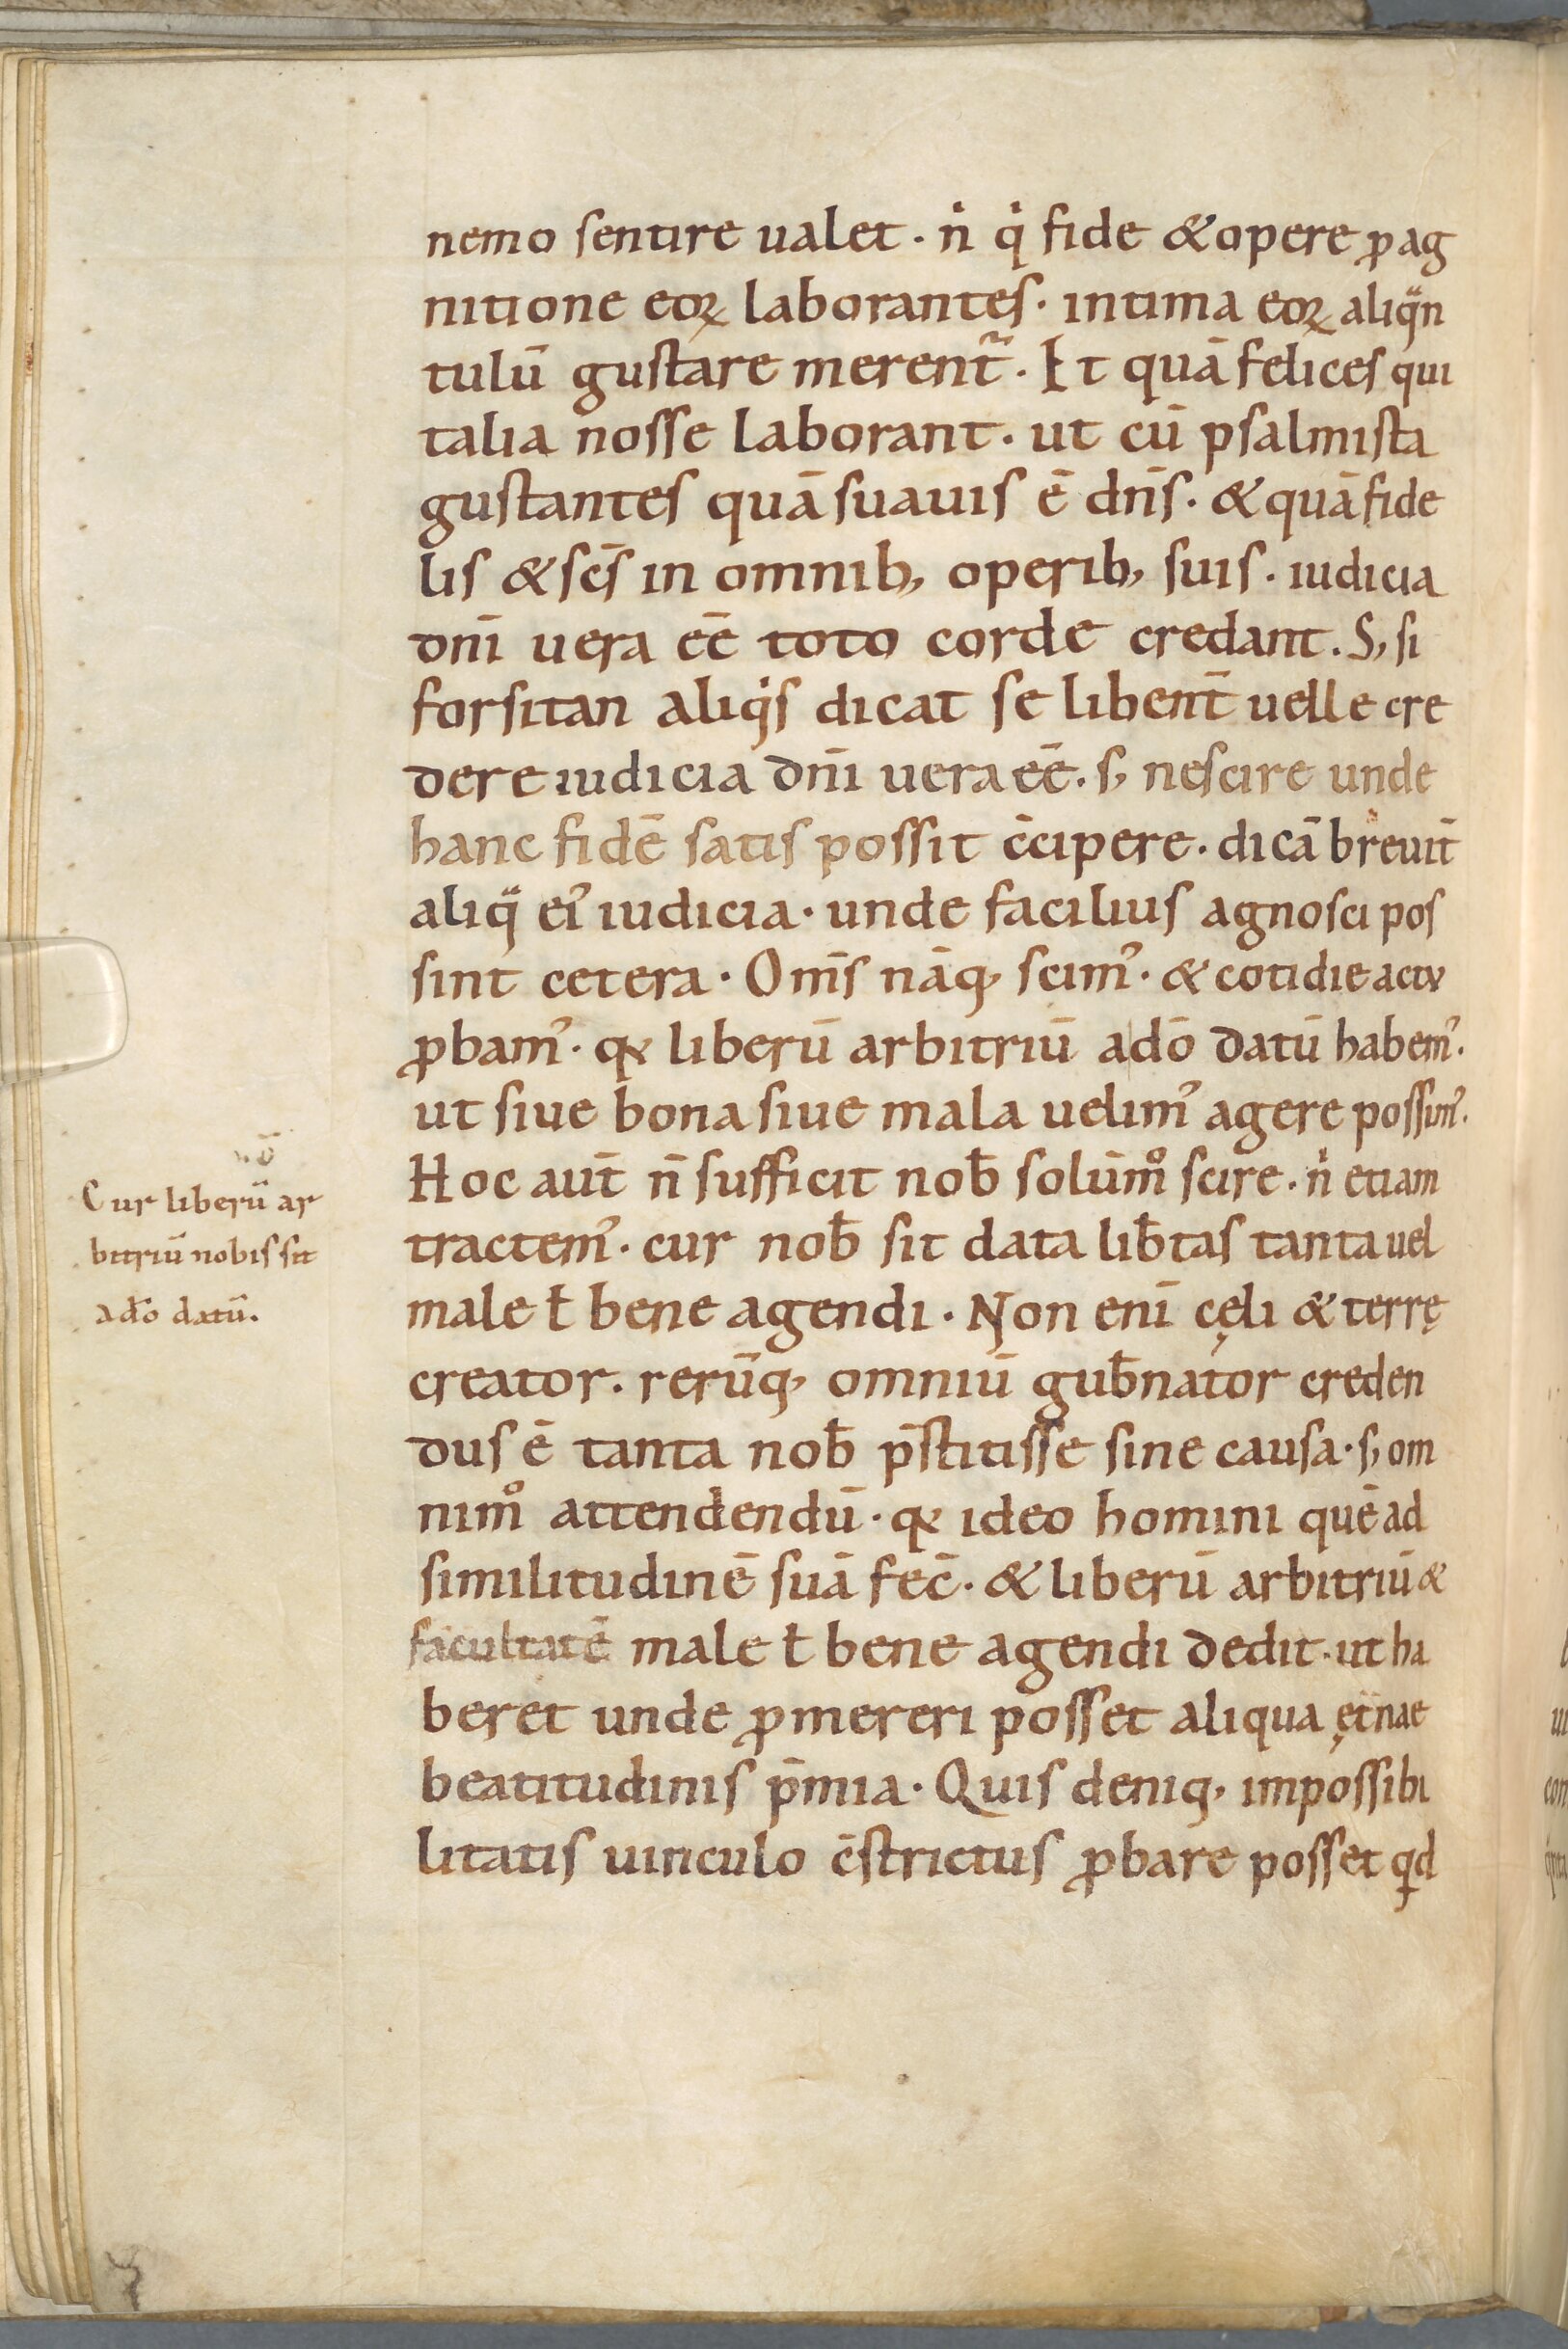 nemo sentire ualet · nͥ qͥ fide & opere ꝓ ag
nitione eoꝝ laborantes · intima eoꝝ aliqͣn
tulū gustare merent᷑ · Et quā felices qui
talia nosse laborant · ut cū psalmista
gustantes quā suauis ē dn̄s · & quā fide
lis & sc̄s in omnib; operib; suis · iudicia
dn̄i uera ee̅ toto corde credant . S; si
forsitan aliqͥs dicat se libent̄ uelle cre
dere iudicia dn̄i uera ee̅ . s; nescire unde
hanc fidē satis possit c̄cipere · dicā breuit̄
aliqͣ eiꝰ iudicia · unde facilius agnosci pos
sint cetera · Om̄s nāq; scimꝰ · & cotidie actu
ꝓbamꝰ · qꝫ liberū arbitriū a dō datū habemꝰ .
ut siue bona siue mala uelimꝰ agere possimꝰ .
Hoc aut̄ n̄ sufficit nob̄ solūmͦ scire · nͥ etiam
tractemꝰ · cur nob̄ sit data lib̄tas tanta uel
male ł bene agendi · Non eni̅ cęli & terrę
creator . rerūq; omniū gub̄nator creden
dus ē tanta nob̄ p̄stitisse sine causa · s; om
nimͦ attendendū · qꝫ ideo homini quē ad
similitudinē suā fec̄ · & liberū arbitriū &
facultatē male ł bene agendi dedit · ut ha
beret unde ꝓmereri posset aliqua et̄nae
beatitudinis p̄mia · Quis deniq; impossibi
litatis uinculo c̄strictus ꝓbare posset qd
Cur liberū ar
bitriū nobis sit
a dō datū .